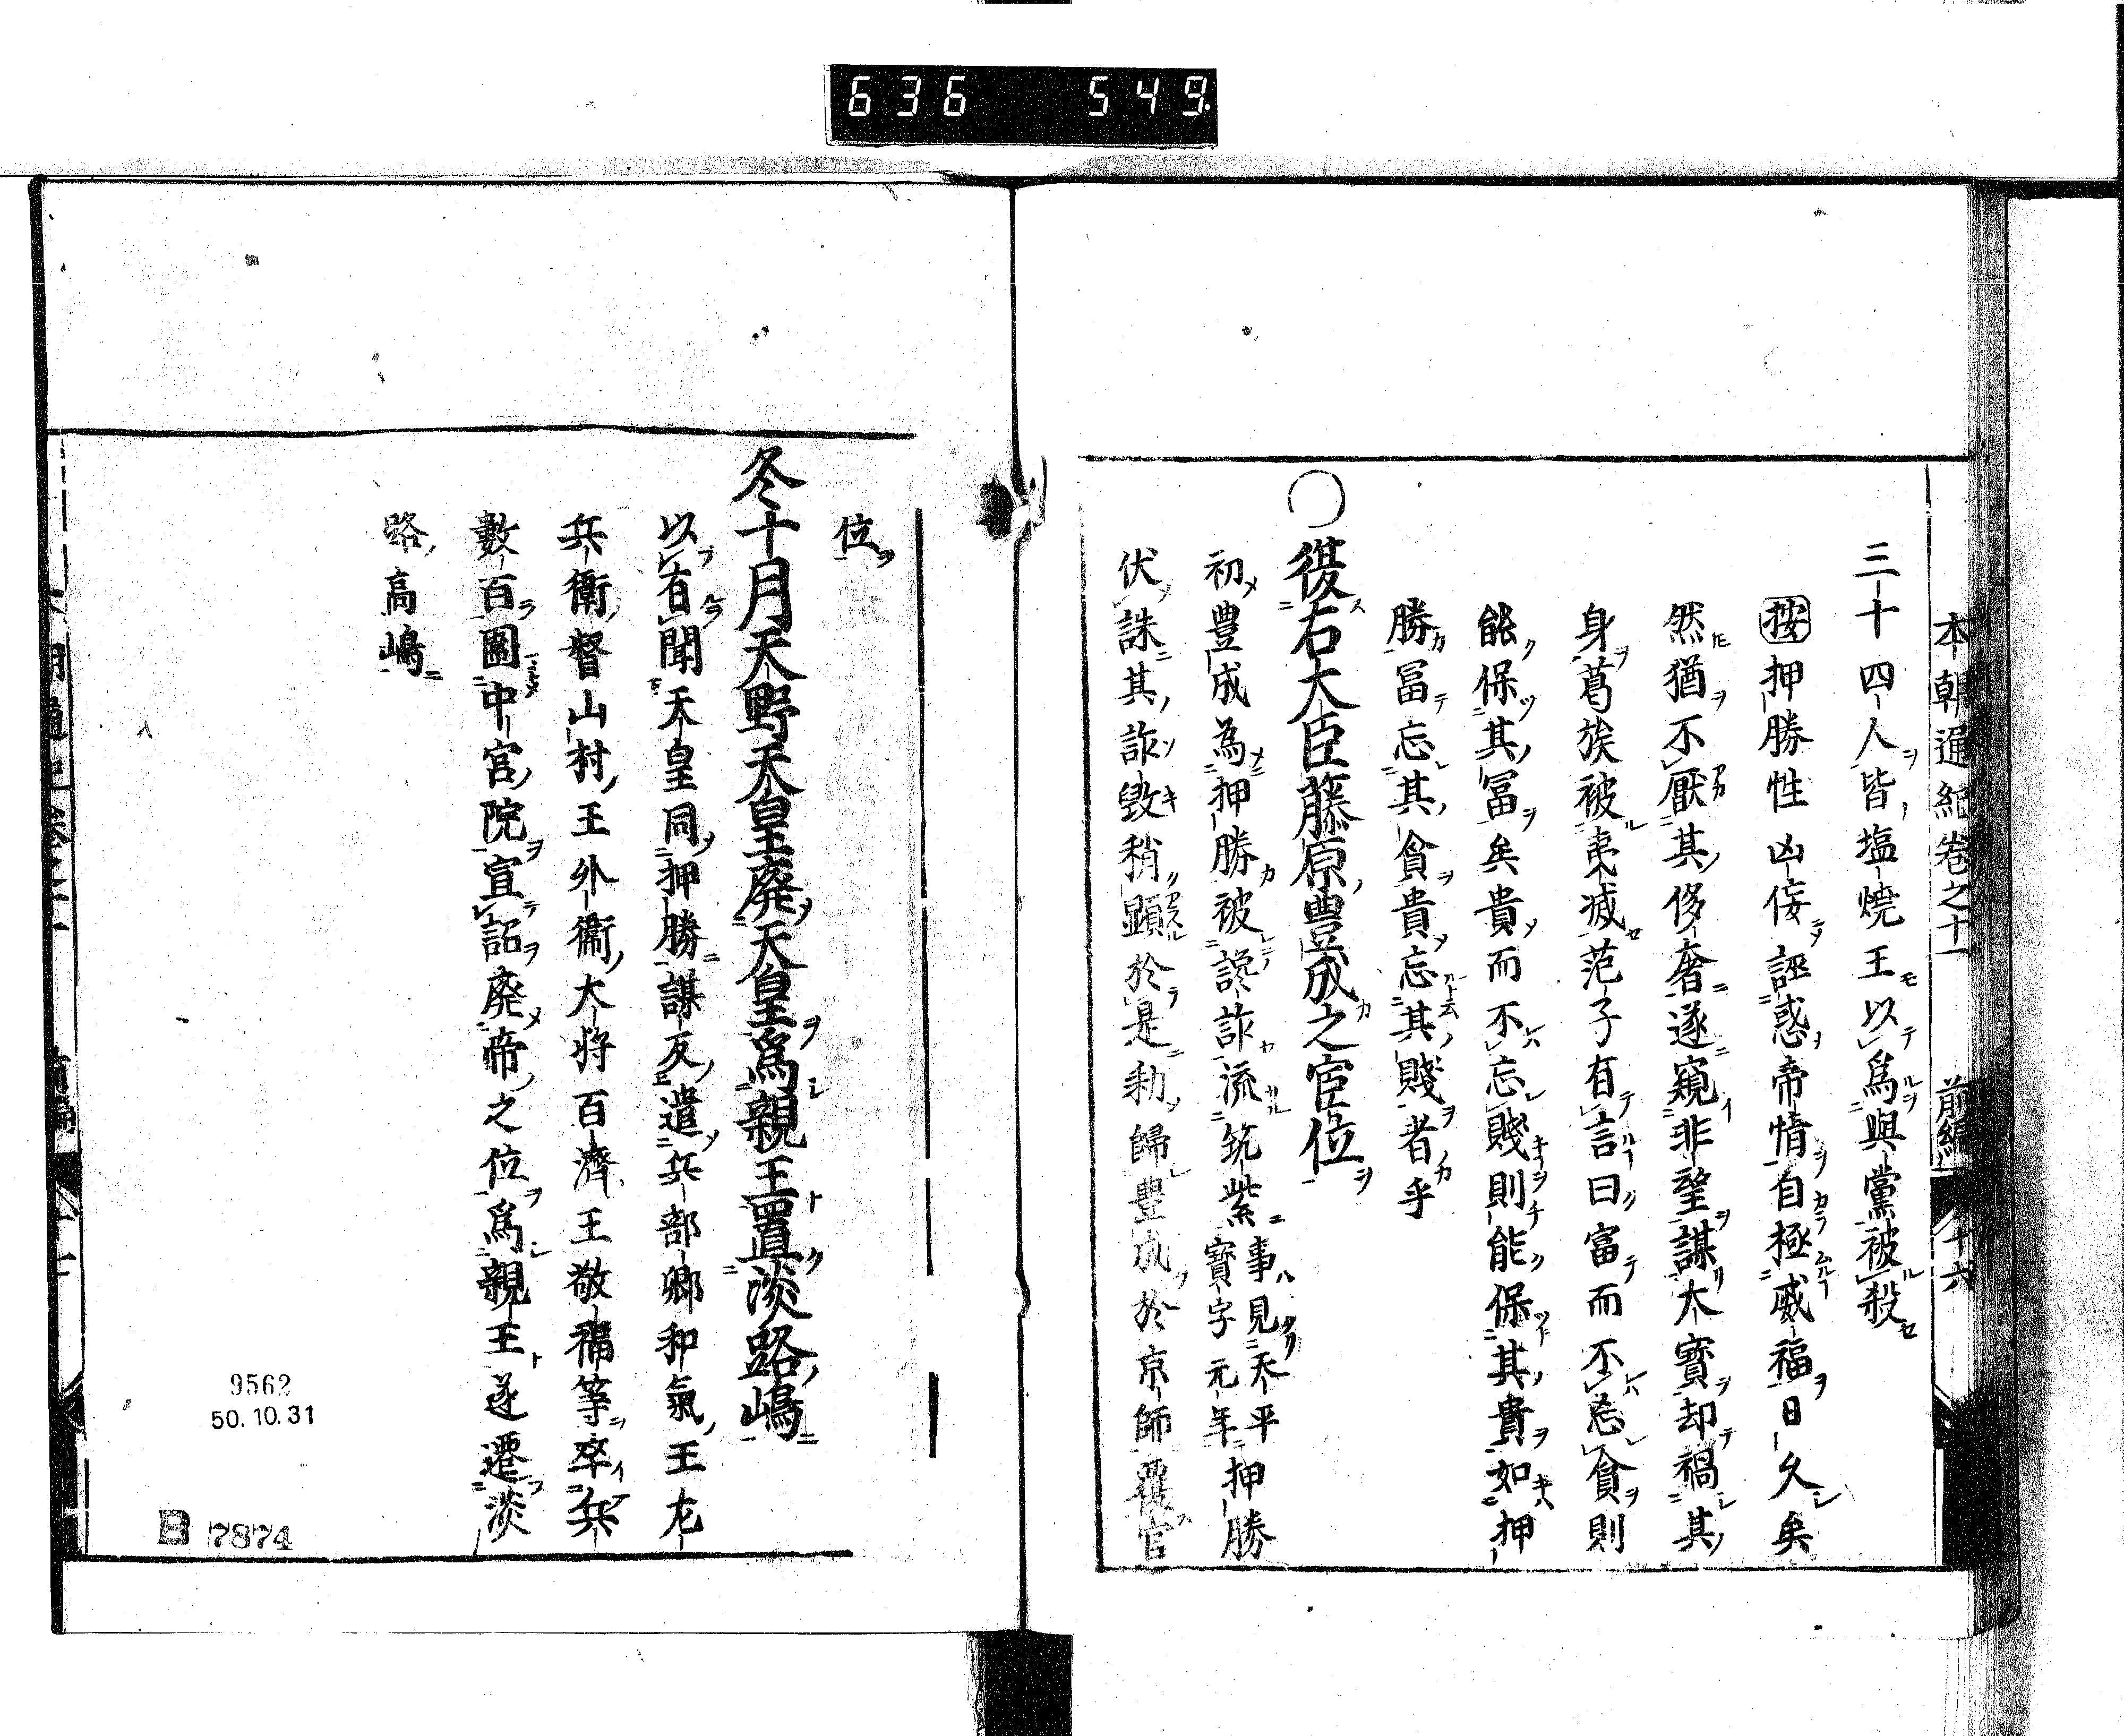 636 549.
本朝通紀卷之十一 前編 十六
三十四人皆塩燒王以爲與黨被殺
按押勝性凶侫誣惑帝情自極威福日久矣
然猶不厭其侈奢遂窺非望謀大寶却禍其
身葛族被夷滅范子有言曰富而不忘貧則
能保其冨矣貴而不忘賤則能保其貴如押
勝冨忘其貧貴忘其賤者乎
〇復右大臣藤原豊成之宦位
初豊成為押勝被讒詐流筑紫事見天平寶字元年押勝
伏誅其詐毀稍顕於是勅歸豊成於京師復官
位
冬十月天野天皇廃天皇爲親王置淡路嶋
以有聞天皇同押勝謀反遣兵部卿和氣王左
兵衛督山村王外衞大将百濟王敬福等卒兵
數百圍中宮院宣詔廃帝之位爲親王遂遷淡
路高嶋
9562
50.10.31
B 7874